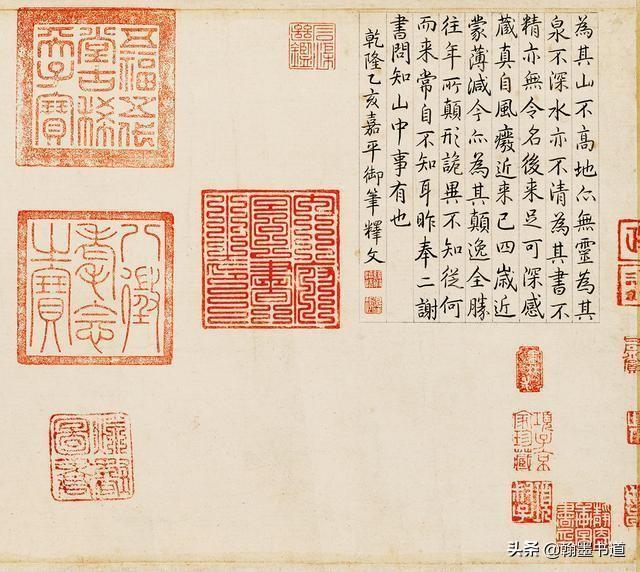 為其山不高地亦無靈為其
泉不深水亦不清為其書不
精亦無令名後来足可深感
藏真自風癈近来已四歲近
蒙薄減今亦為其顛逸全勝
往年所顛形詭異不知從何
而来常自不知耳昨奉二謝
書問知山中事有也
乾隆乙亥嘉平御筆釋文
五福五代堂古稀天子寶
八徵耄念之寶
項子京家珍藏
头条 @翰墨书道